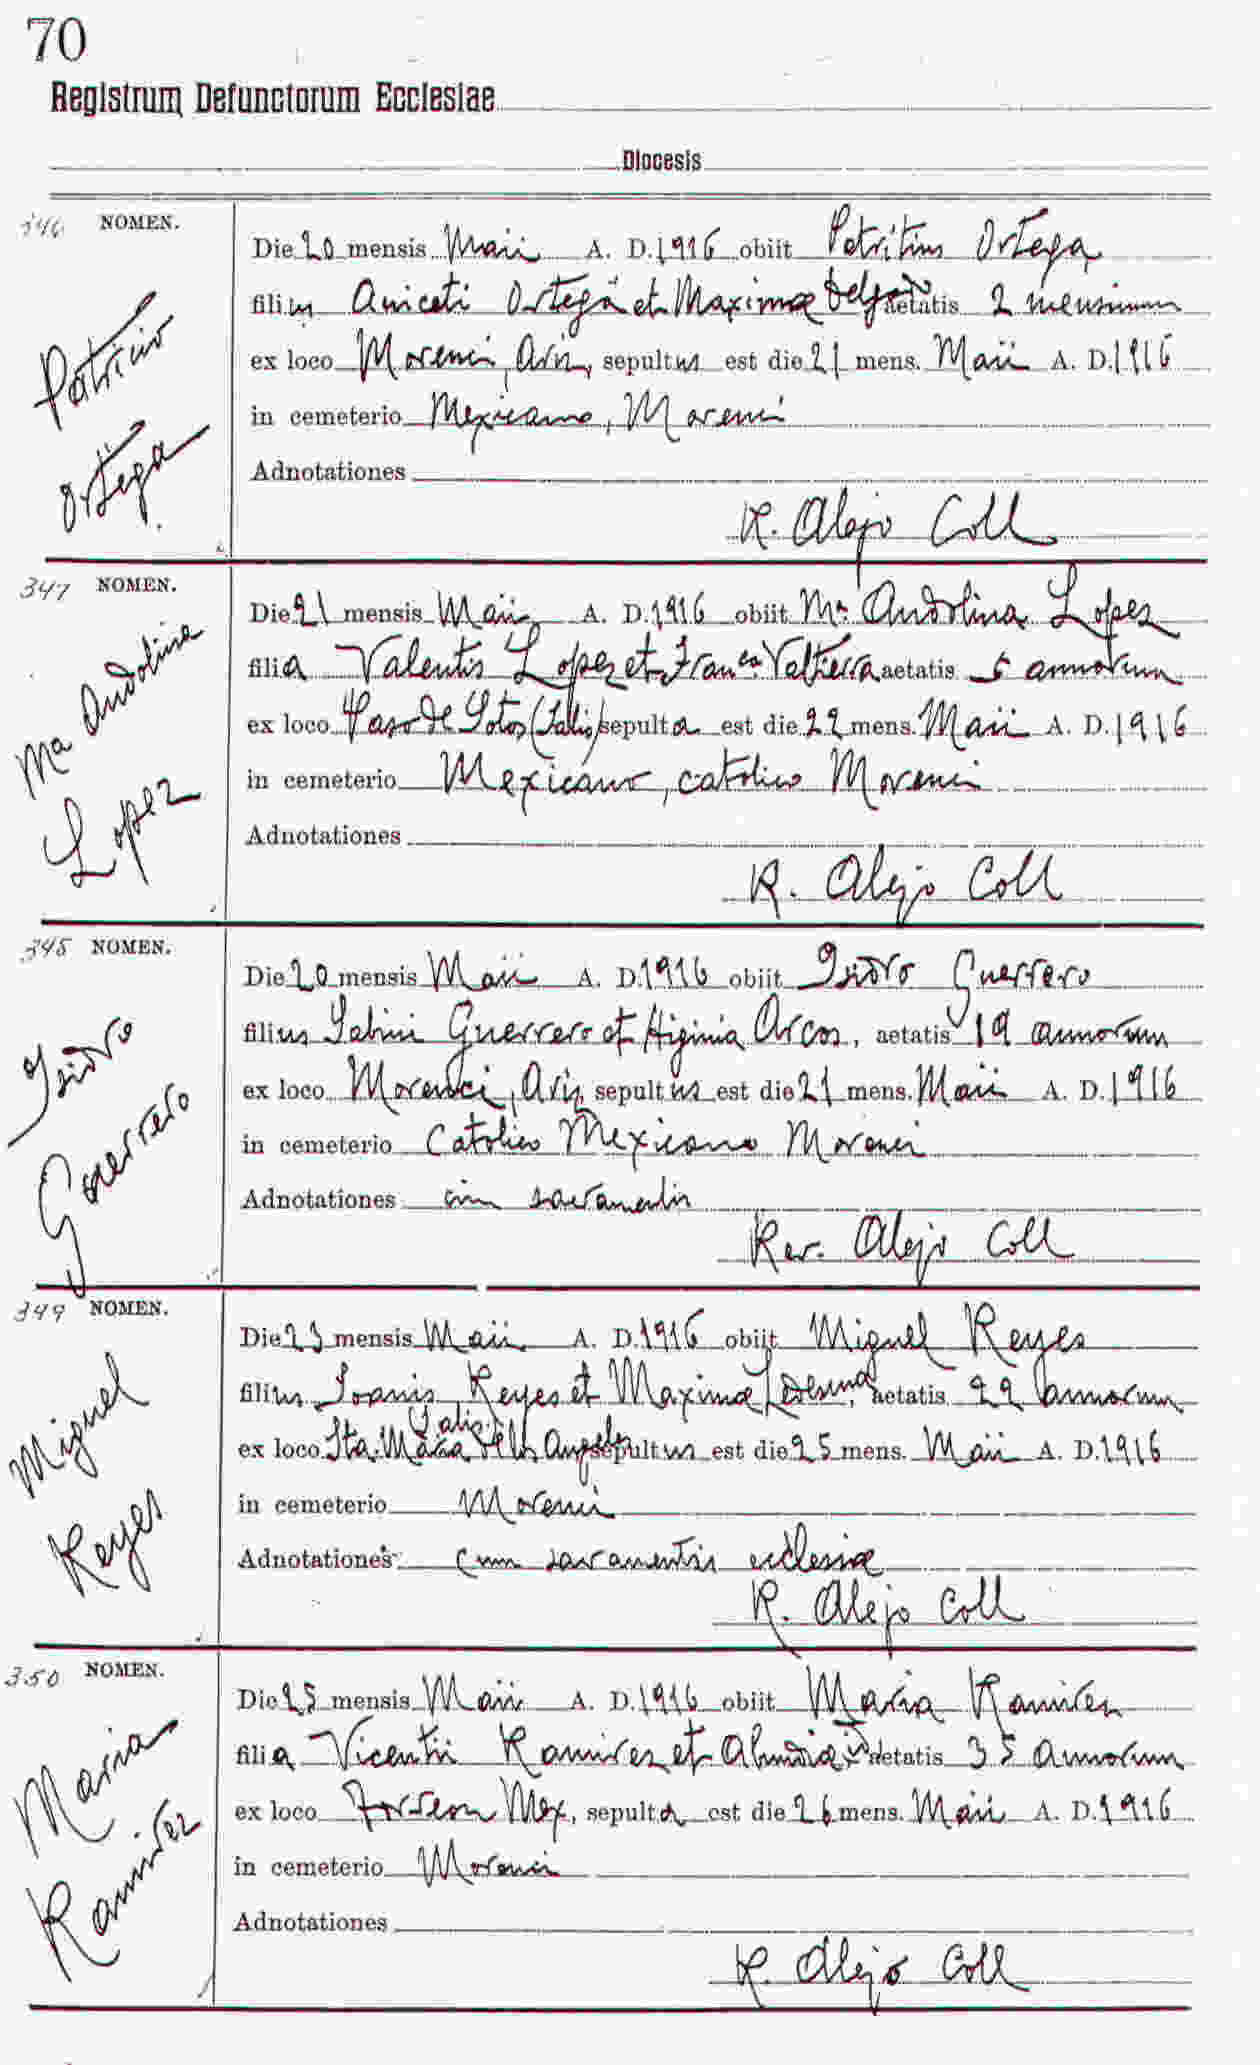 70
Registrum Defunctorum Ecclesiae
Diocesis
346 NOMEN.
Patricio
Ortega
Die 20 mensis Maii A. D. 1916 obiit Patritius Ortega
filius Aniceti Ortega et Maximæ Delgado aetatis 2 mensium
ex loco Morenci, Ariz, sepultus est die 21 mens. Maii A. D. 1916
in cemeterio Mexicano, Morenci
Adnotationes
R. Alejo Coll
347 NOMEN.
Ma Andolina
Lopez
Die 21 mensis Maii A. D. 1916 obiit Ma. Andolina Lopez
filia Valentis Lopez et Franca. Valtierra aetatis 5 annorum
ex loco Paso de Sotos (Jalis) sepulta est die 22 mens. Maii A. D. 1916
in cemeterio Mexicano, catolico Morenci
Adnotationes
R. Alejo Coll
348 NOMEN.
Isidro
Guerrero
Die 20 mensis Maii A. D. 1916 obiit Isidro Guerrero
filius Sabini Guerrero et Higinia Arcos, aetatis 19 annorum
ex loco Morenci, Ariz, sepultus est die 21 mens. Maii A. D. 1916
in cemeterio Catolico Mexicano Morenci
Adnotationes cum sacramentis
Rev. Alejo Coll
349 NOMEN.
Miguel
Reyes
Die 23 mensis Maii A. D. 1916 obiit Miguel Reyes
filius Joanis Reyes et Maximæ Ledesma, aetatis 22 annorum
Jalis.
ex loco Sta. Maria de los Angeles sepultus est die 25 mens. Maii A. D. 1916
in cemeterio Morenci
Adnotationes cum sacramentis ecclesiæ
R. Alejo Coll
350 NOMEN.
Maria
Ramirez
Die 25 mensis Maii A. D. 1916 obiit Maria Ramirez
filia Vicentii Ramirez et aetatis 35 annorum
ex loco Torreon Mex, sepulta est die 26 mens. Maii A. D. 1916
in cemeterio Morenci
Adnotationes
R. Alejo Coll